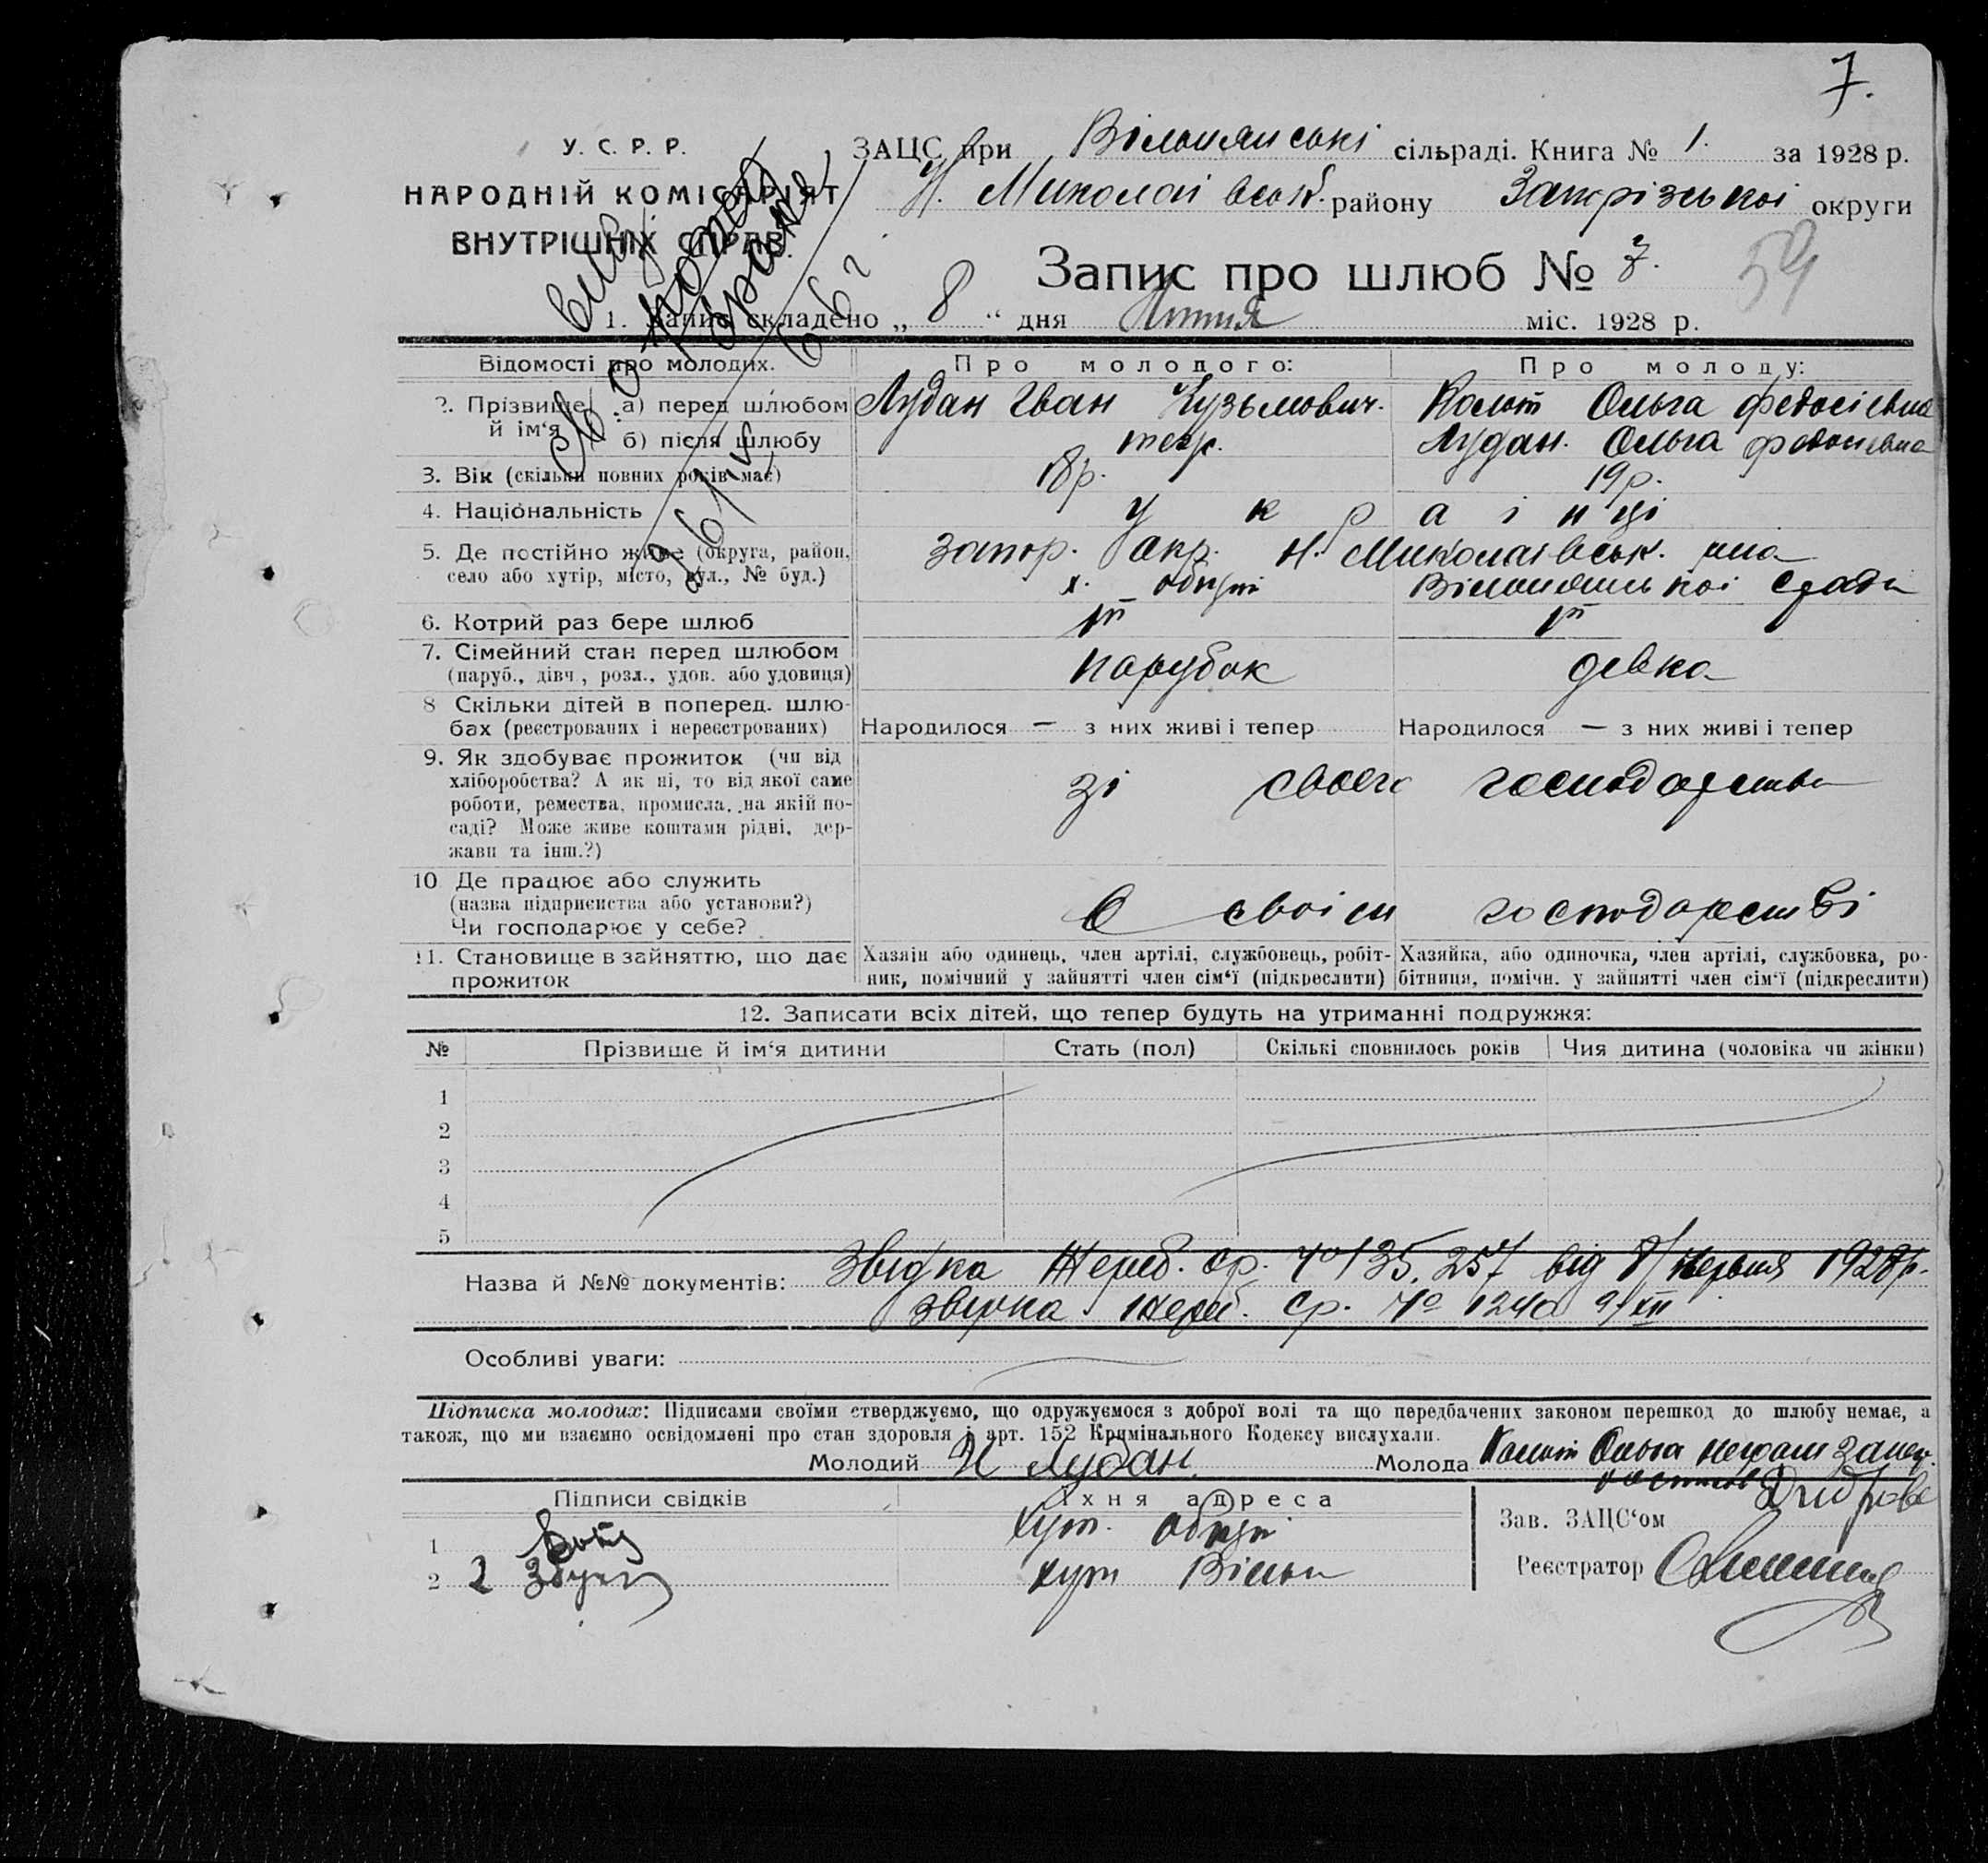 7.
У. С. Р. Р.
НАРОДНІЙ КОМІСАРІЯТ
ВНУТРІШНІХ СПРАВ.
ЗАЦС при Вільнянські сільраді. Книга № 1. за 1928 р.
Н. Миколаївськ. району Запорізької округи
Запис про шлюб № 7.
59
1. Запис складено „ 8 “ дня міс. 1928 р.
Відомості про молодих. Про молодого: Про молоду:
2. Прізвище й ім‘я а) перед шлюбом Лудан Іван Кузьмович. Колот Ольга Федосіевна
б) після шлюбу Лудан. Ольга Федосиевна
3. Вік (скільки повних років має) 18р. 19р.
4. Національність українці
5. Де постійно живе (округа, район, Запор. окр. Н. Миколаївськ. р-на
село або хутір, місто, вул., № буд.) х. Вільнянської с/ради
6. Котрий раз бере шлюб
7. Сімейний стан перед шлюбом парубок девка
(паруб., дівч., розл., удов. або удовиця)
8 Скільки дітей в поперед. шлю-
бах (реєстрованих і нереєстрованих) Народилося — з них живі і тепер Народилося — з них живі і тепер
9. Як здобуває прожиток (чи від
хліборобства? А як ні, то від якої саме зі своего господарства
роботи, ремества, промисла, на якій по-
саді? Може живе коштами рідні, дер-
жави та інш.?)
10 Де працює або служить
(назва підприємства або установи?) в своїм господарстві
Чи господарює у себе?
11. Становище в зайняттю, що дає Хазяїн або одинець, член артілі, службовець, робіт- Хазяйка, або одиночка, член артілі, службовка, ро-
прожиток ник, помічний у зайнятті член сім‘ї (підкреслити) бітниця, помічн. у зайнятті член сім‘ї (підкреслити)
12. Записати всіх дітей, що тепер будуть на утриманні подружжя:
№ Прізвище й ім‘я дитини Стать (пол) Скількі сповнилось років Чия дитина (чоловіка чи жінки)
1
2
3
4
5
Назва й №№ документів: Звідка Жереб. ср. № 135. 257 від 8/червня 1928р.
Жереб. ср. №
Особливі уваги:
Підписка молодих: Підписами своїми стверджуємо, що одружуємося з доброї волі та що передбачених законом перешкод до шлюбу немає, а
також, що ми взаємно освідомлені про стан здоровля і арт. 152 Кримінального Кодексу вислухали.
Молодий И Лудан. Молода Колот Ольга
Підписи свідків Їхня адреса Зав. ЗАЦС‘ом
1 хут.
2 2 хут Вільн Реєстратор